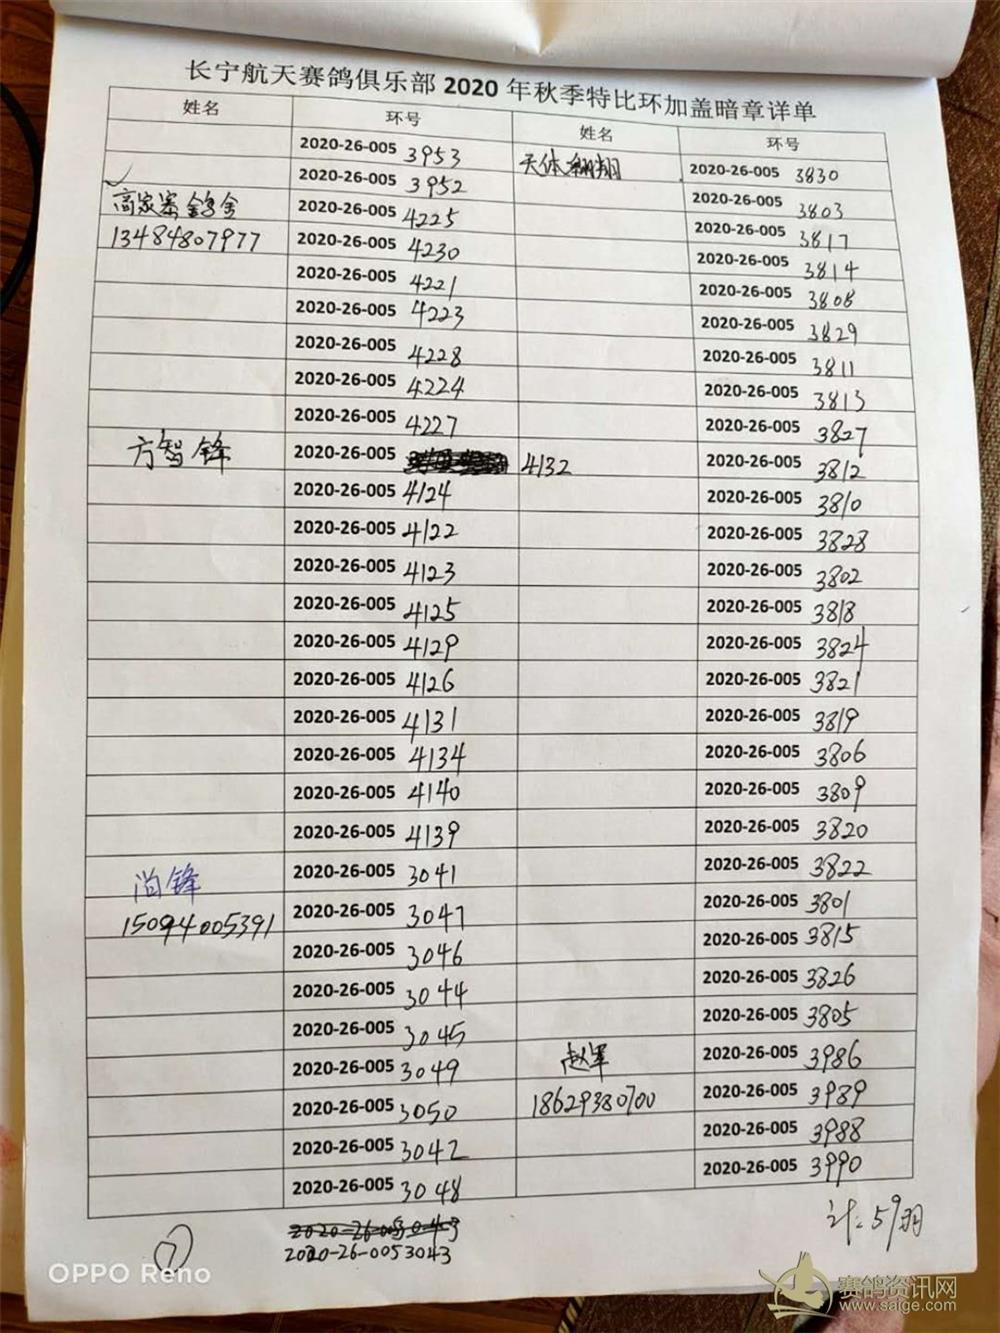 长宁航天赛鸽俱乐部 2020 年秋季特比环加盖暗章详单
姓名 环号 姓名 环号
2020-26-005 3953 天体翱翔 2020-26-005 3830
2020-26-005 3952 2020-26-005 3803
高家寨 2020-26-005 4225 2020-26-005 3817
13484807977 2020-26-005 4230 2020-26-005 3814
2020-26-005 4221 2020-26-005 3808
2020-26-005 4223 2020-26-005 3829
2020-26-005 4228 2020-26-005 3811
2020-26-005 4224 2020-26-005 3813
2020-26-005 4227 2020-26-005 3827
方智锋 2020-26-005 4132 2020-26-005 3812
2020-26-005 4124 2020-26-005 3810
2020-26-005 4122 2020-26-005 3828
2020-26-005 4123 2020-26-005 3802
2020-26-005 4125 2020-26-005 3818
2020-26-005 4129 2020-26-005 3824
2020-26-005 4126 2020-26-005 3821
2020-26-005 4131 2020-26-005 3819
2020-26-005 4134 2020-26-005 3806
2020-26-005 4140 2020-26-005 3809
2020-26-005 4139 2020-26-005 3820
锋 2020-26-005 3041 2020-26-005 3822
15094005391 2020-26-005 3047 2020-26-005 3801
2020-26-005 3046 2020-26-005 3815
2020-26-005 3044 2020-26-005 3826
2020-26-005 3045 2020-26-005 3805
2020-26-005 3049 赵军 2020-26-005 3986
2020-26-005 3050 18629380700 2020-26-005 3989
2020-26-005 3042 2020-26-005 3988
2020-26-005 3048 2020-26-005 3990
2020-26-005 3043
2020-26-0053043
计:59羽
⑦
OPPO Reno
赛鸽资讯网
www.saige.com